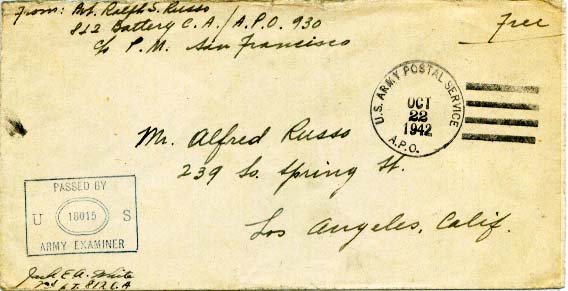 From: Pvt. Ralph S. Russo
812 Battery C.A./A.P.O. 930
c/o P.M. San Francisco
Free
U.S. ARMY POSTAL SERVICE
OCT
22
1942
A.P.O.
Mr. Alfred Russo
239 So. Spring St.
Los Angeles, Calif.
PASSED BY
U 18015 S
ARMY EXAMINER
E.A. White
LT. 812 CA